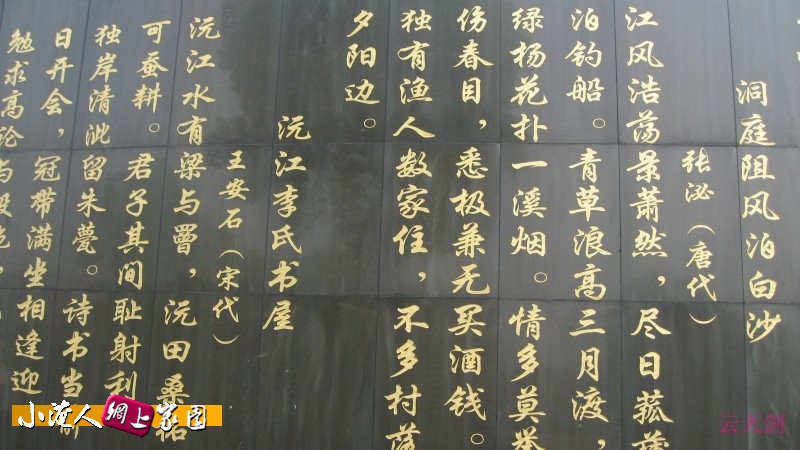 洞庭阻风泊白沙
张泌（唐代）
江风浩荡景萧然，尽日菰
泊钓船。青草浪高三月渡，
绿杨花扑一溪烟。情多莫举
伤春目，悉极兼无买酒钱。
独有渔人数家住，不多村落
夕阳边。
沅江李氏书屋
王安石（宋代）
沅江水有梁与罾，沅田桑柘
可蚕耕。君子其间耻射利
独岸清泚留朱甍。诗书当
日开会，冠带满坐相逢迎
勉求高论与
小淹人網上家園